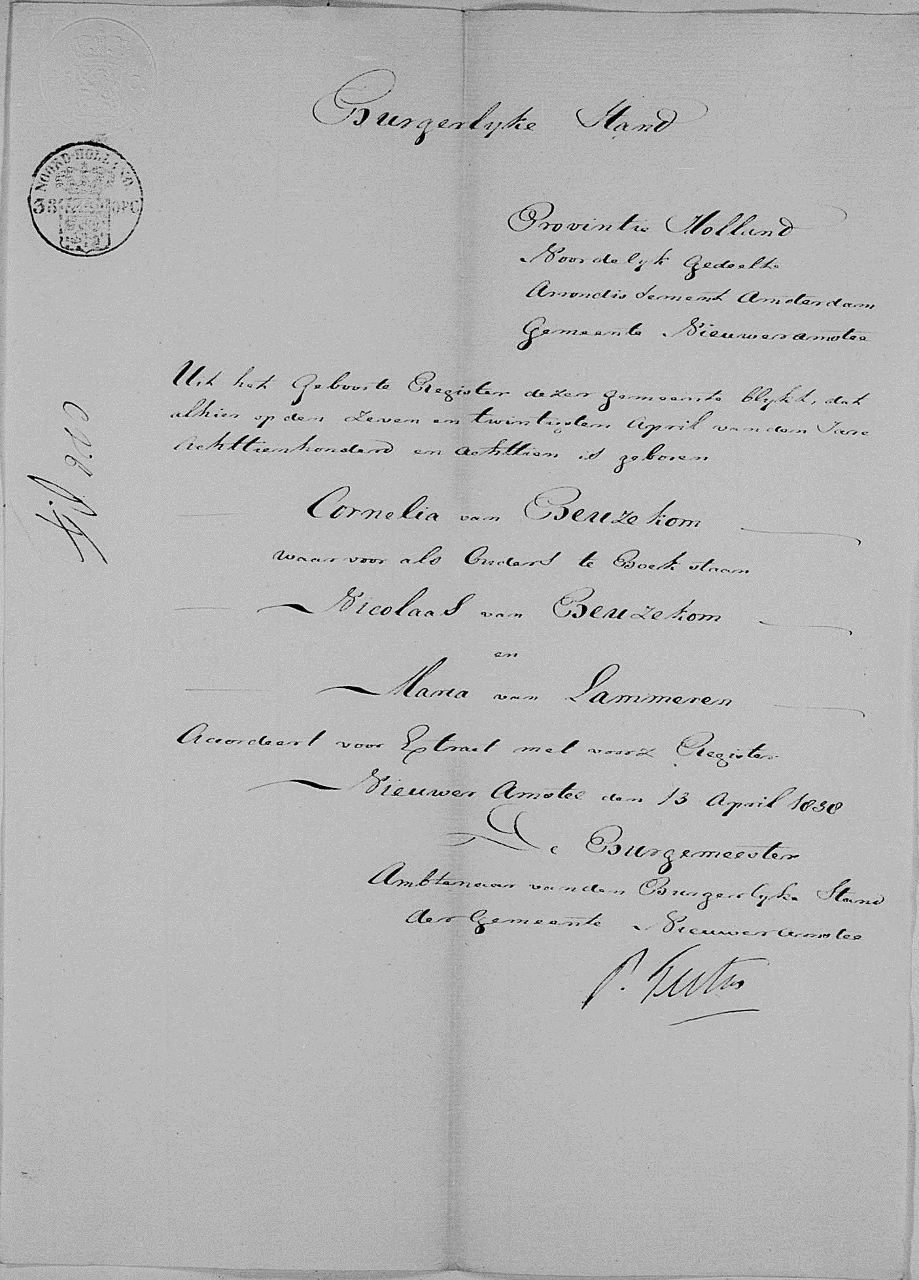 Burgerlyke Stand
NOORD-HOLLAND
Provintie Holland
Noordelyk Gedeelte
Arrondissement Amsterdam
Gemeente Nieuweramstel
Uit het Geboorte Register dezer gemeente blykt, dat
alhier op den zeven en twintigsten April van den Jare
Achttienhonderd en achttien is geboren
Cornelia van Beuzekom
waarvoor als Ouders te Boek staan
Nicolaas van Beuzekom
en
Maria van Lammeren
Accordeert voor Extract met voorz Register
Nieuwer Amstel den 13 April 1838
De Burgemeester
Ambtenaar van den Burgerlyke Stand
der Gemeente Nieuweramstel
P.